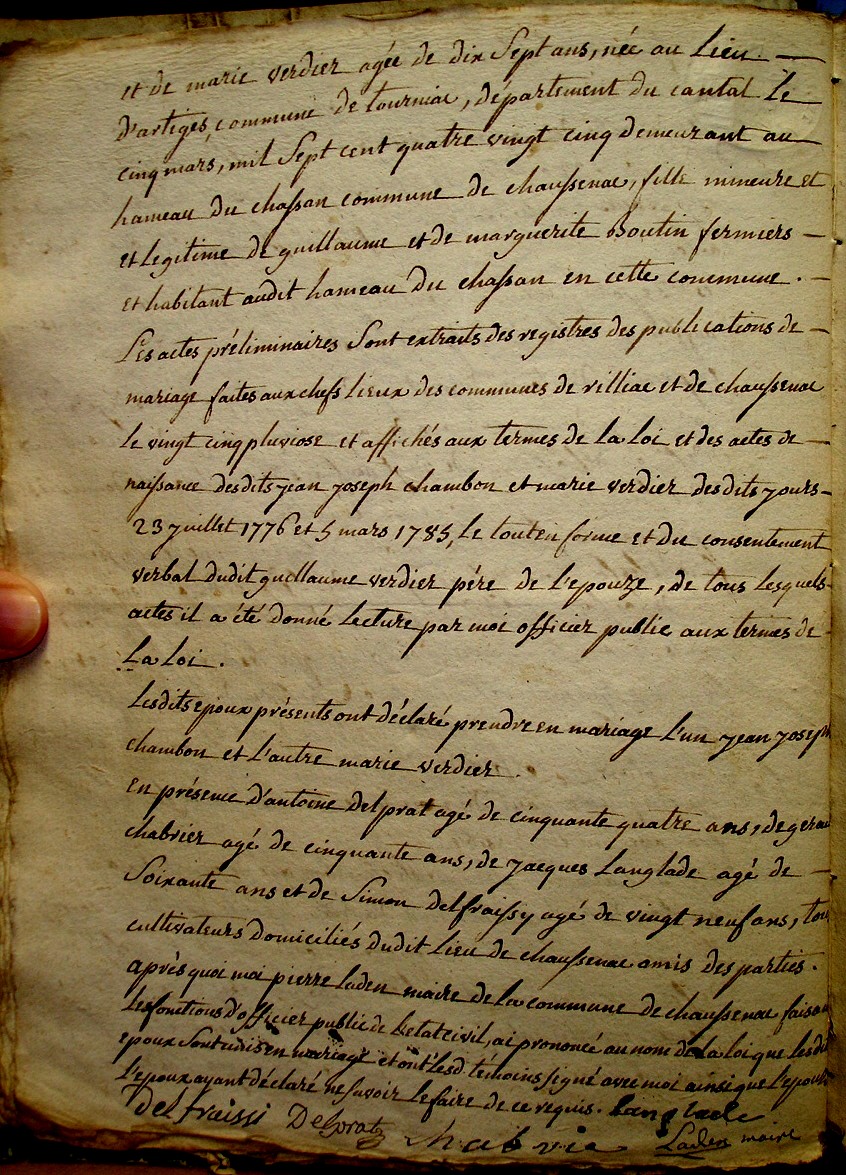 et de marie verdier agée de dix Sept ans, née au Lieu —
d'artiges, commune de tourniac, département du cantal Le
cinq mars, mil Sept cent quatre vingt cinq demeurant au
hameau du chassan commune de chaussenac, fille mineure et
et Legitime de guillaume et de marguerite Boutin fermiers —
et habitant audit hameau du chassan en cette commune. —
Les actes préliminaires Sont extraits des registres des publications de —
mariage faites aux chefs Lieux des communes de rilliac et de chaussenac
Le vingt cinq pluviose et affichés aux termes de La Loi et des actes de —
naissance desdits jean joseph chambon et marie verdier desdits jours —
23 juillet 1776 et 5 mars 1785, Le tout en forme et du consentement
verbal dudit guillaume verdier pére de L'epouze, de tous Lesquels
actes il a été donné Lecture par moi officier public aux termes de
La Loi.
Lesdits epoux présents ont déclaré prendre en mariage L'un jean joseph
chambon et L'autre marie verdier.
en présence d'antoine delprat agé de cinquante quatre ans, de gerau
chabrier agé de cinquante ans, de jacques Langlade agé de —
Soixante ans et de Simon delfraissy agé de vingt neuf ans, tou
cultivateurs domiciliés dudit Lieu de chaussenac amis des parties.
après quoi moi pierre Laden maire de La commune de chaussenac faisan
Les fonctions d'officier public de L'etat civil, ai prononcé au nom de La Loi que Lesdi
epoux Sont unis en mariage et ont Lesd. témoins signé avec moi ainsi que L'epouze
L'epoux ayant déclaré ne savoir Le faire de ce requis. Langlade
delfraissi Delprat
chabrie Laden maire